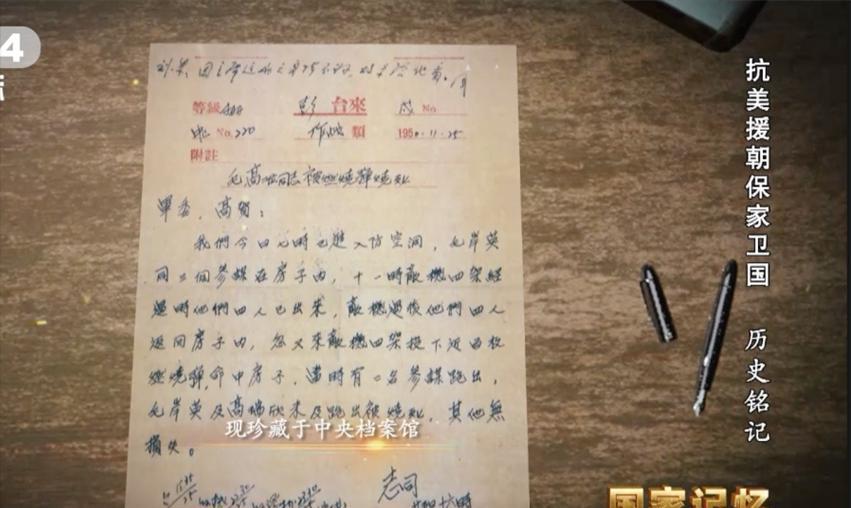 4
刘、
等級 彭 台來 成 No.
No. 220 作 類 1950-11-25
附註
毛高 同志被燃燒彈燒死
軍委，高賀：
我們今日七時已進入防空洞，毛岸英
同三個參謀在房子內，十一時敵機四架經
過時他們四人已出來，敵機過後他們四人
返回房子內，忽又來敵機四架投下近百枚
燃燒彈，命中房子，當時有二名參謀跑出，
毛岸英及高瑞欣未及跑出被燒死，其他無
損失。
志司
現珍藏于中央档案馆
抗美援朝保家卫国 历史铭记
国家记忆